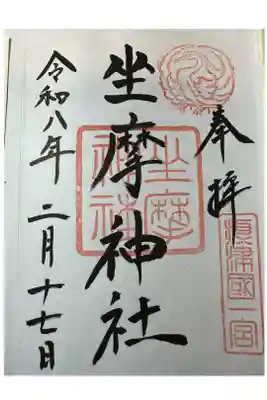 奉拝
摂津國一宮
坐摩神社
坐摩神社
令和八年二月十七日